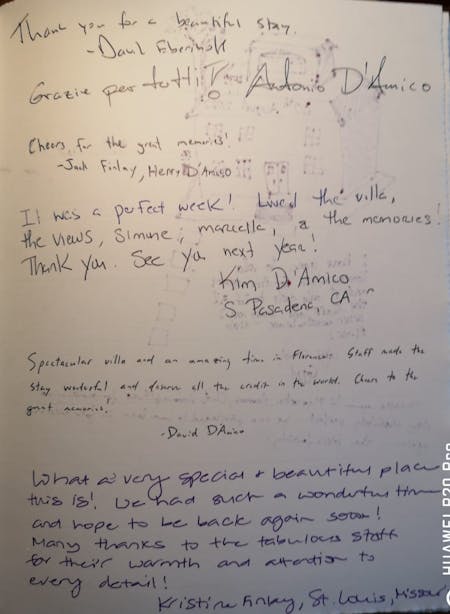 Thank you for a beautiful stay.
- Daul
Grazie per tutti! Antonio D'Amico
Cheers for the great memories!
- Jack Finlay, Henry D'Amico
It was a perfect week! Loved the villa,
the views, Simone, marcella, & the memories!
Thank you. See you next year!
Kim D'Amico
S Pasadena, CA
Spectacular villa and an amazing time in Florence. Staff made the
stay wonderful and deserve all the credit in the world. Cheers to the
great memories!
- David D'Amico
What a very special & beautiful place
this is! We had such a wonderful time
and hope to be back again soon!
Many thanks to the fabulous staff
for their warmth and attention to
every detail!
Kristine Finlay, St. Louis, Missour
HUAWEI P20 Pro